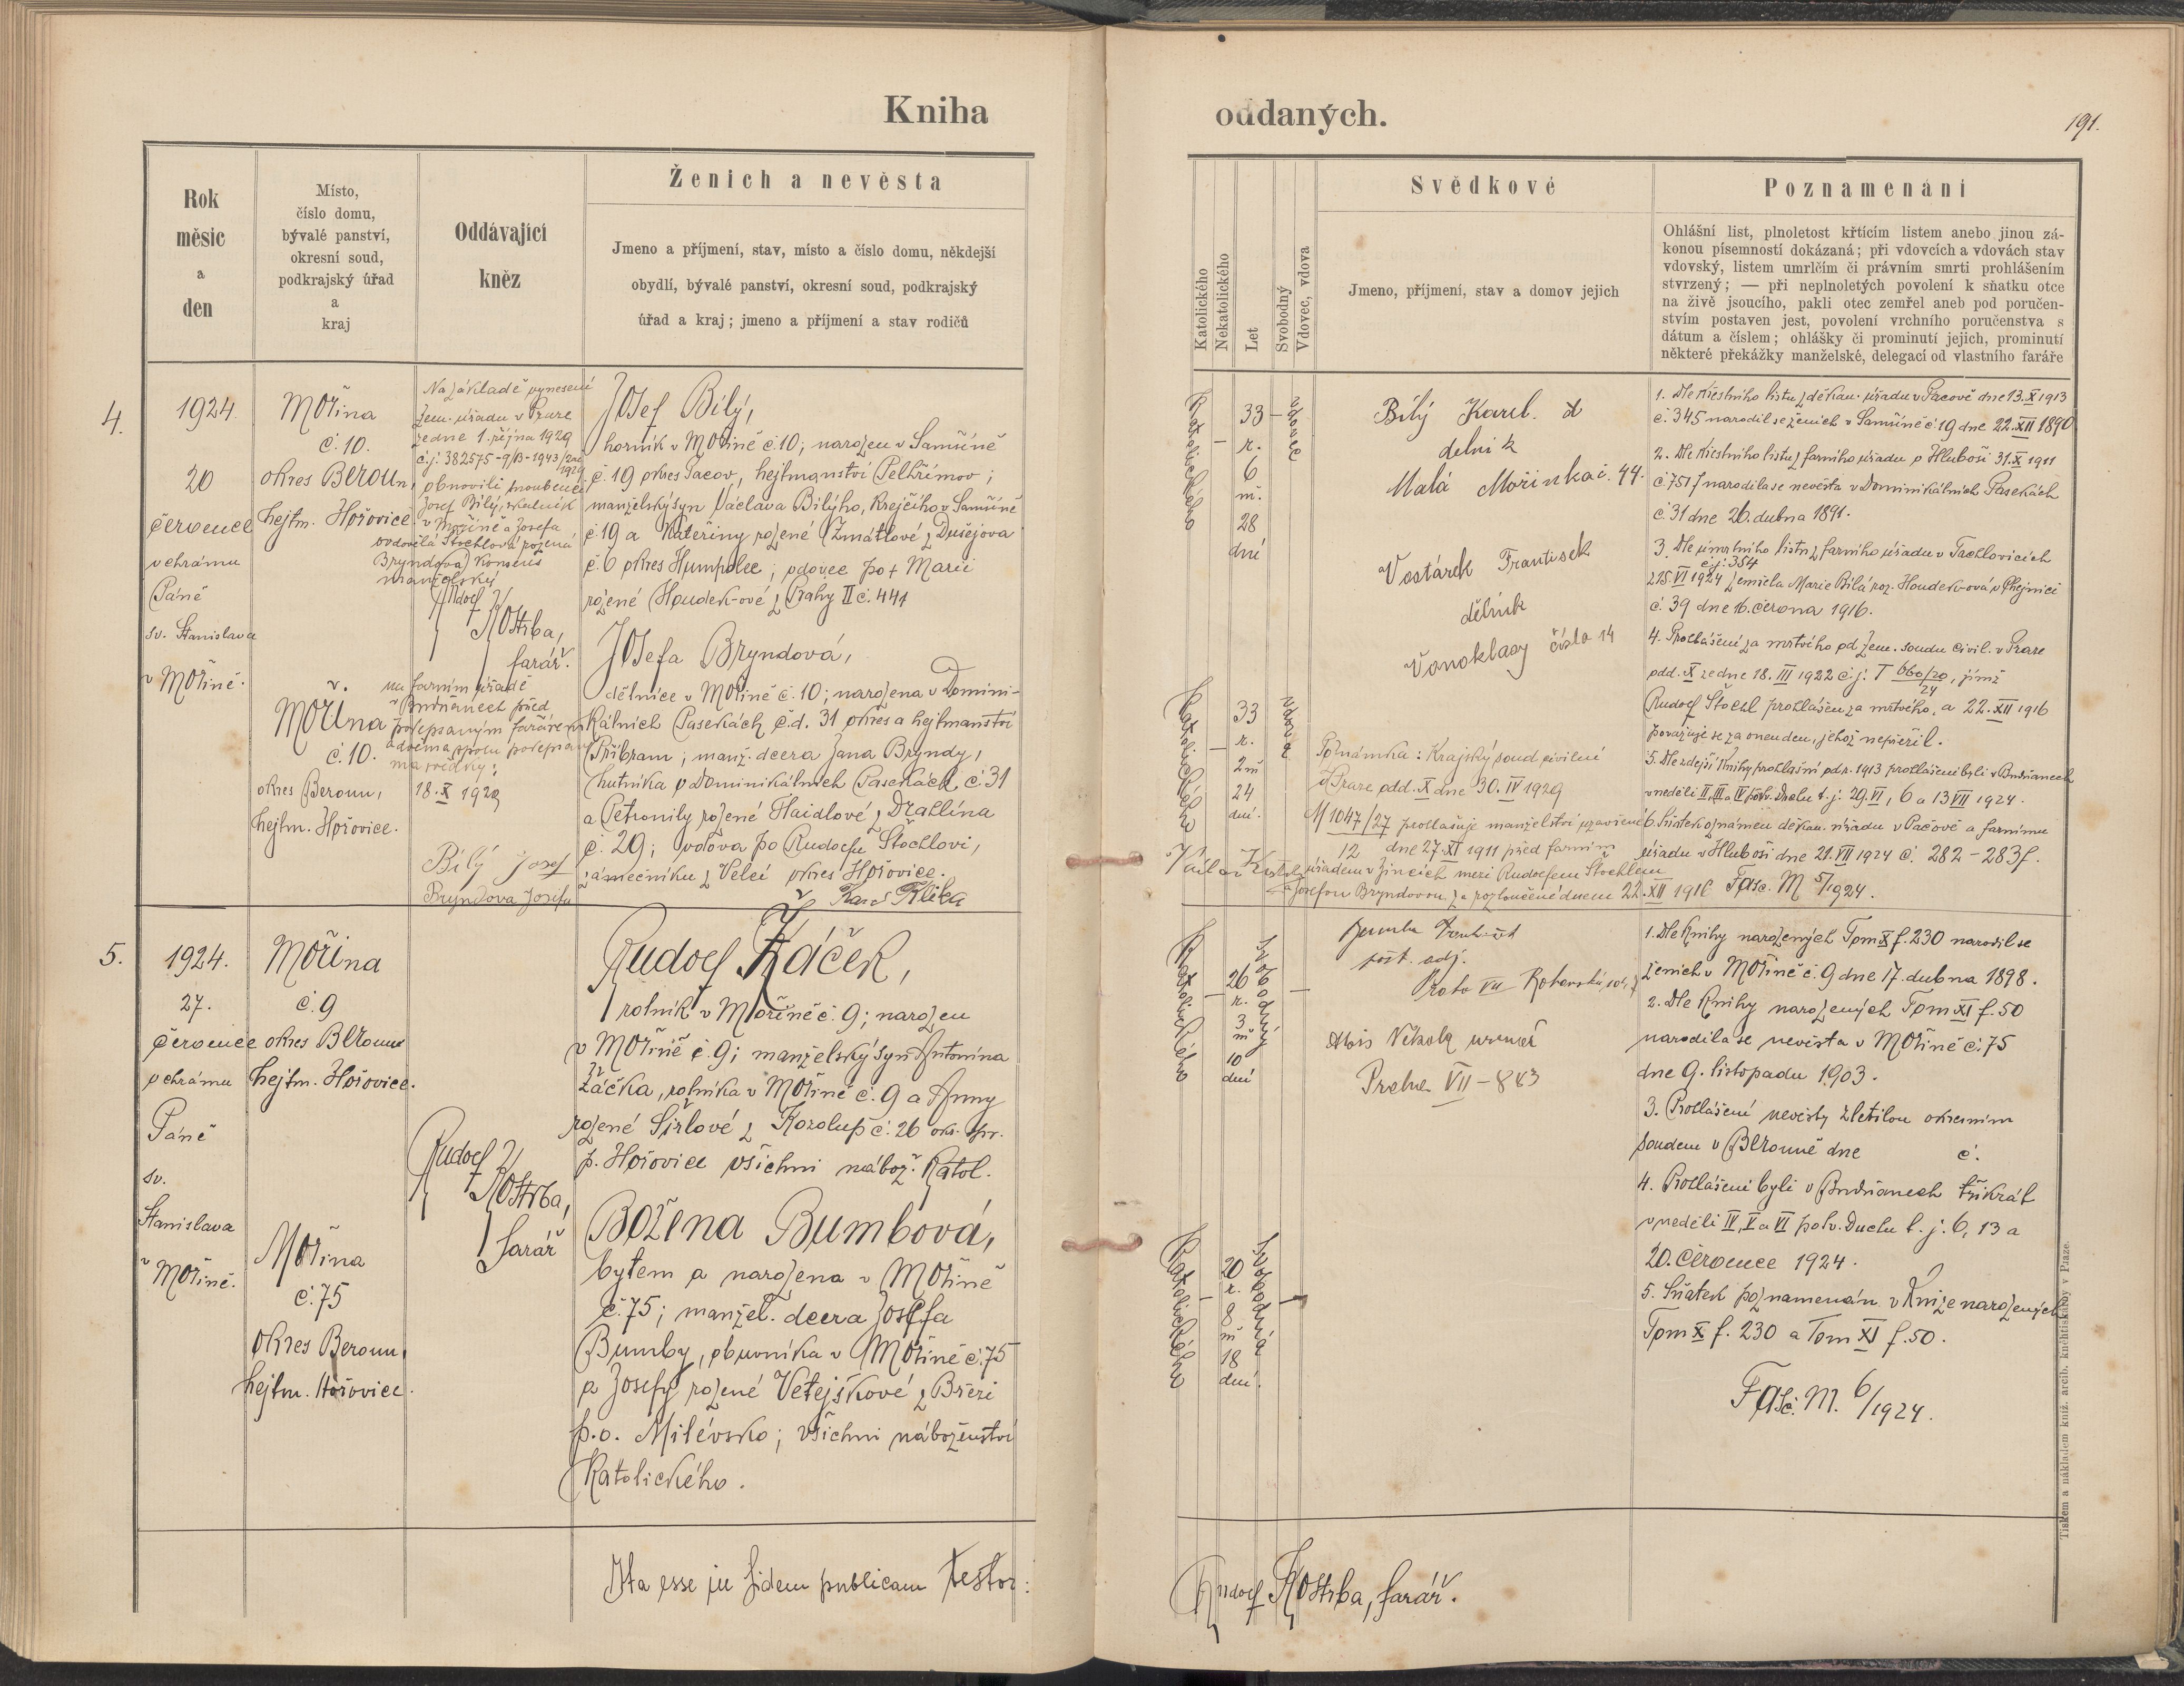 Kniha
oddaných.
191.
Rok
měsic
a
den
Místo,
číslo domu,
bývalé panství,
okresní soud,
podkrajský úřad
a
kraj
Oddávající
kněz
Ženich a nevěsta
Jmeno a příjmení, stav, místo a číslo domu, někdejší
obydlí, bývalé panství, okresní soud, podkrajský
úřad a kraj; jmeno a příjmení a stav rodičů
Katolického
Nekatolického
Let
Svobodný
Vdovec, vdova
Svědkové
Jmeno, příjmení, stav a domov jejich
Poznamenání
Ohlášní list, plnoletost křtícím listem anebo jinou zá-
konou písemností dokázaná; při vdovcích a vdovách stav
vdovský, listem umrlčím či právním smrti prohlášením
stvrzený; — při neplnoletých povolení k sňatku otce
na živě jsoucího, pakli otec zemřel aneb pod poručen-
stvím postaven jest, povolení vrchního poručenstva s
dátum a číslem; ohlášky či prominutí jejich, prominutí
některé překážky manželské, delegací od vlastního faráře
4.
1924.
20
července
v chrámu
Páně
sv. Stanislava
v Mořině.
Mořina
č. 10.
okres Beroun,
hejtm. Hořovice.
Mořina
č. 10.
okres Beroun,
hejtm. Hořovice.
Na základě vynesení
zem. úřadu v Praze
ze dne 1. října 1929
obnovili snoubenci
Josef Bílý,
v Mořině a Josefa
ovdovělá Štochlová rozená
Bryndová konsens
manželský
Rudolf
Kostrba,
farář.
na farním úřadě
v Budňanech před
podepsaným farářem
a dvěma spolu podepsaný
ma svědky:
18.X 1929
Bílý Josef
Bryndova Josefa
Josef Bílý,
horník v Mořině č. 10; narozen v Samšíně
č. 19 okres Pacov, hejtmanství Pelhřimov;
manželský syn Václava Bílýho, krejčího v Samšíně
č. 19 a Kateřiny rozené Zmátlové z Dušejova
č. 6 okres Humpolec; vdovec po † Marii
rozené Houdek-ové z Prahy II č. 441
Josefa Bryndová,
dělnice v Mořině č. 10; narozena v Domini-
kálních Pasekách č.d. 31 okres a hejtmanství
Příbram; manž. dcera Jana Bryndy,
hutníka v Dominikálních Pasekách č. 31
a Petronily rozené Haidlové z Drahlína
č. 29; vdova po Rudolfu Štochlovi,
zámečníku z Velcí okres Hořovice.
Karel Klika
Katolického
33
r.
6
m.
28
dní
vdovec
Katolického
33
r.
2 m
24
dní.
vdova
Bílý Karel.
delnik
Malá Mořinka č. 44.
Vostárek Frantisek
dělník
Vonoklasy číslo 14
Poznámka: Krajský soud civilní
v Praze odd. X dne 30. IV 1929
1047/27 prohlašuje manželství uzavřené
12 dne 27. XI 1911 před farním
úřadem v Jincích mezi Rudolfem Štochlem
a Josefou Bryndovou za rozloučené dnem 22. XII 1916
1. Dle křestního listu z děkan. úřadu v Pacově dne 13. X 1913
č. 345 narodil se ženich v Samšíně č. 19 dne 22. XII 1890
2. Dle křestního listu z farního úřadu v Hluboši 31. X 1911
č. 751 f narodila se nevěsta v Dominikálních Pasekách
č. 31 dne 26. dubna 1891.
3. Dle úmrtního listu z farního úřadu v Tachlovicích
č.j. 354
z 15. VI 1924 zemřela Marie Bílá roz. Houdek-ová v Chejnici
č. 39 dne 16. června 1916.
4. Prohlášení za mrtvého od zem. soudu civil. v Praze
odd. X ze dne 18. III 1922 č.j. T 660/20, jímž
24
Rudolf Štochl prohlášen za mrtvého, a 22. XII 1916
považuje se za onen den, jehož nepřežil.
5. Dle zdejší knihy prohlášní od r. 1913 prohlášeni byli v Budňanech
v neděli II, III a IV po sv. Duchu t. j. 29. VI, 6 a 13 VII 1924.
6. Sňatek oznámen děkan. úřadu v Pacově a farnímu
úřadu v Hluboši dne 21. VII 1924 č. 282 - 283 f.
Fasc. M 5/1924.
5.
1924.
27.
července
v chrámu
Páně
sv.
Stanislava
v Mořině.
Mořina
č. 9
okres Beroun
hejtm. Hořovice.
Mořina
č. 75
okres Beroun,
hejtm. Hořovice.
Rudolf
Kostrba,
farář
Rudolf Žáček,
rolník v Mořině č. 9; narozen
v Mořině č. 9; manželský syn Antonína
Žáčka, rolníka v Mořině č. 9 a Anny
rozené Širlové z Kozolup č. 26
p. Hořovice všichni nábož. katol.
Božena Bumbová,
bytem a narozena v Mořině
č. 75; manžel. dcera Josefa
Bumby, obuvníka v Mořině č. 75
a Josefy rozené Vetejškové z Březí
p.o. Milévsko; všichni náboženství
Katolického.
Katolického
26
r.
3
m
10
dní
Svobodný
Katolického
20
r.
8
m
18
dní.
Svobodná
post. adj.
Praha VII
Alois Nikola
Praha VII – 883
1. Dle knihy narozených Tom X f. 230 narodil se
ženich v Mořině č. 9 dne 17. dubna 1898.
2. Dle knihy narozených Tom XI f. 50
narodila se nevěsta v Mořině č. 75
dne 9. listopadu 1903.
3. Prohlášení nevěsty zletilou okresním
soudem v Berouně dne č.
4. Prohlášeni byli v Budňanech třikrát
v neděli IV, V a VI po sv. Duchu t. j. 6, 13 a
20. července 1924.
5. Sňatek poznamenán v knize narozených
Tom X f. 230 a Tom XI f. 50.
Fasc. M. 6/1924.
Ita esse in fidem publicam testor:
Rudolf Kostrba, farář.
Tiskem a nákladem kniž. arcib. knihtiskárny v Praze.